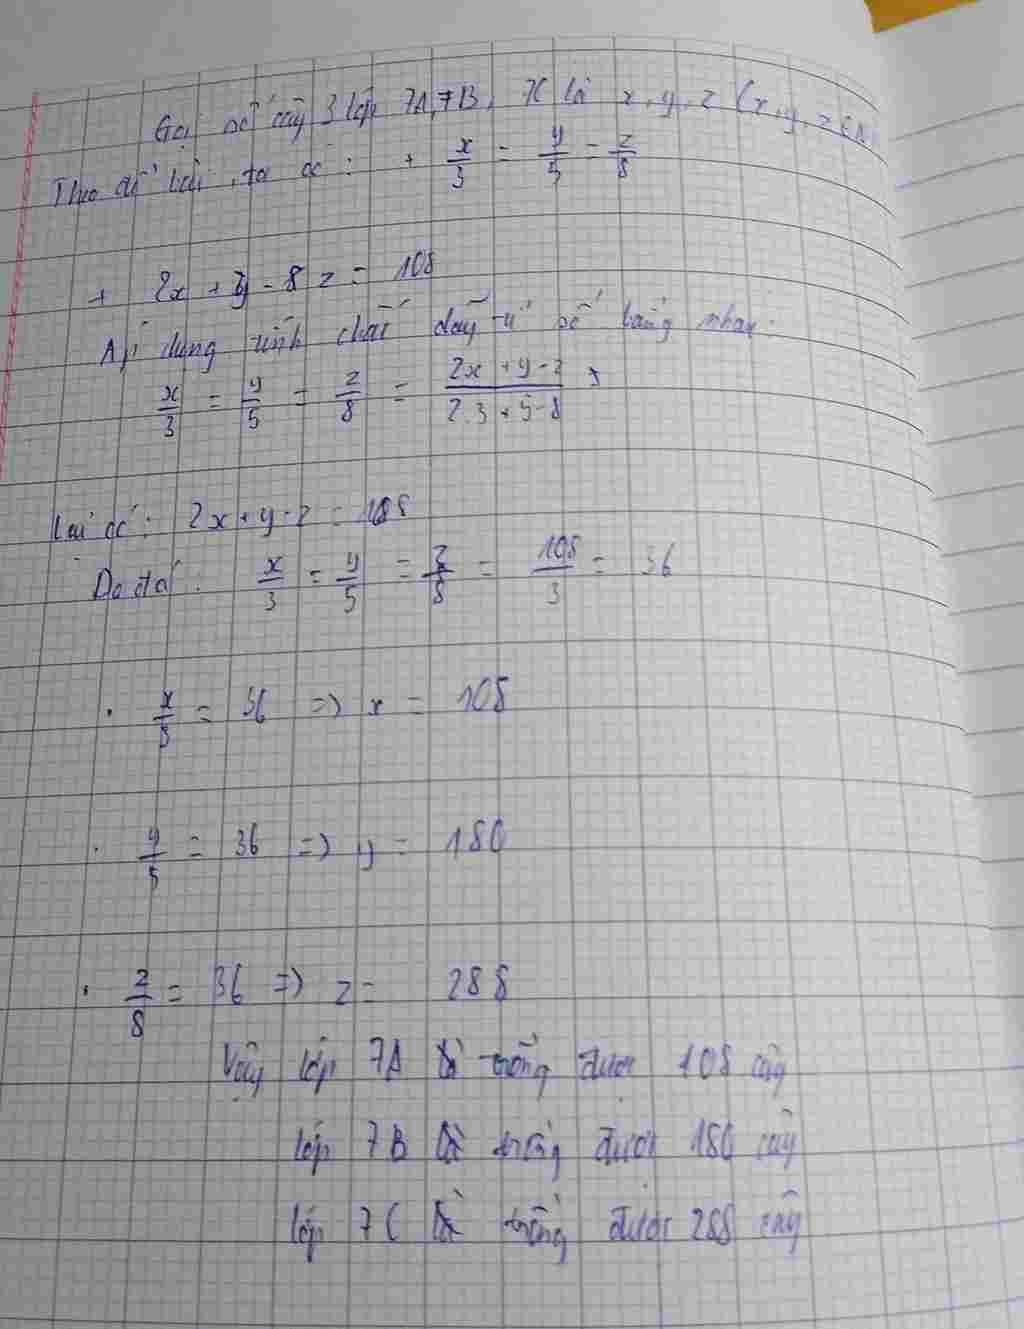 Gọi số cây 3 lớp 7A, 7B, 7C là x, y, z (x, y, z ∈ N
Theo đề bài, ta có: + x/3 = y/5 = z/8
+ 2x + y - 8 z = 108
Áp dụng tính chất dãy tỉ số bằng nhau:
x/3 = y/5 = z/8 = (2x + y - z)/(2.3 + 5 - 8)
Lại có: 2x + y - z = 108
Do đó: x/3 = y/5 = z/8 = 108/3 = 36
. x/3 = 36 => x = 108
. y/5 = 36 => y = 180
. z/8 = 36 => z = 288
Vậy lớp 7A trồng được 108 cây
lớp 7B trồng được 180 cây
lớp 7C trồng được 288 cây